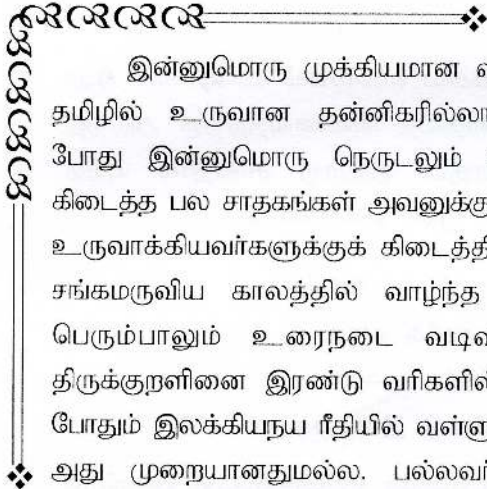 இன்னுமொரு முக்கியமான
தமிழில் உருவான தன்னிகரில்லா
போது இன்னுமொரு நெருடலும்
கிடைத்த பல சாதகங்கள் அவனுக்கு
உருவாக்கியவர்களுக்குக் கிடைத்தி
சங்கமருவிய காலத்தில் வாழ்ந்த
பெரும்பாலும் உரைநடை வடிவ
திருக்குறளினை இரண்டு வரிகளில்
போதும் இலக்கியநய ரீதியில் வள்ளு
அது முறையானதுமல்ல. பல்லவர்